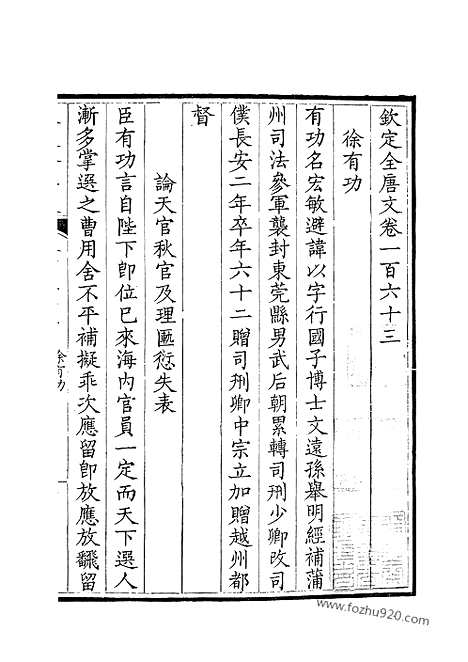 欽定全唐文卷一百六十三
徐有功
有功名宏敏避諱以字行國子博士文遠孫舉明經補蒲
州司法參軍襲封東莞縣男武后朝累轉司刑少卿改司
僕長安二年卒年六十二贈司刑卿中宗立加贈越州都
督
論天官秋官及理匭愆失表
臣有功言自陛下即位已來海內官員一定而天下選人
漸多掌選之曹用舍不平補擬乖次應留即放應放飜留
徐有功
www.fozhu920.com